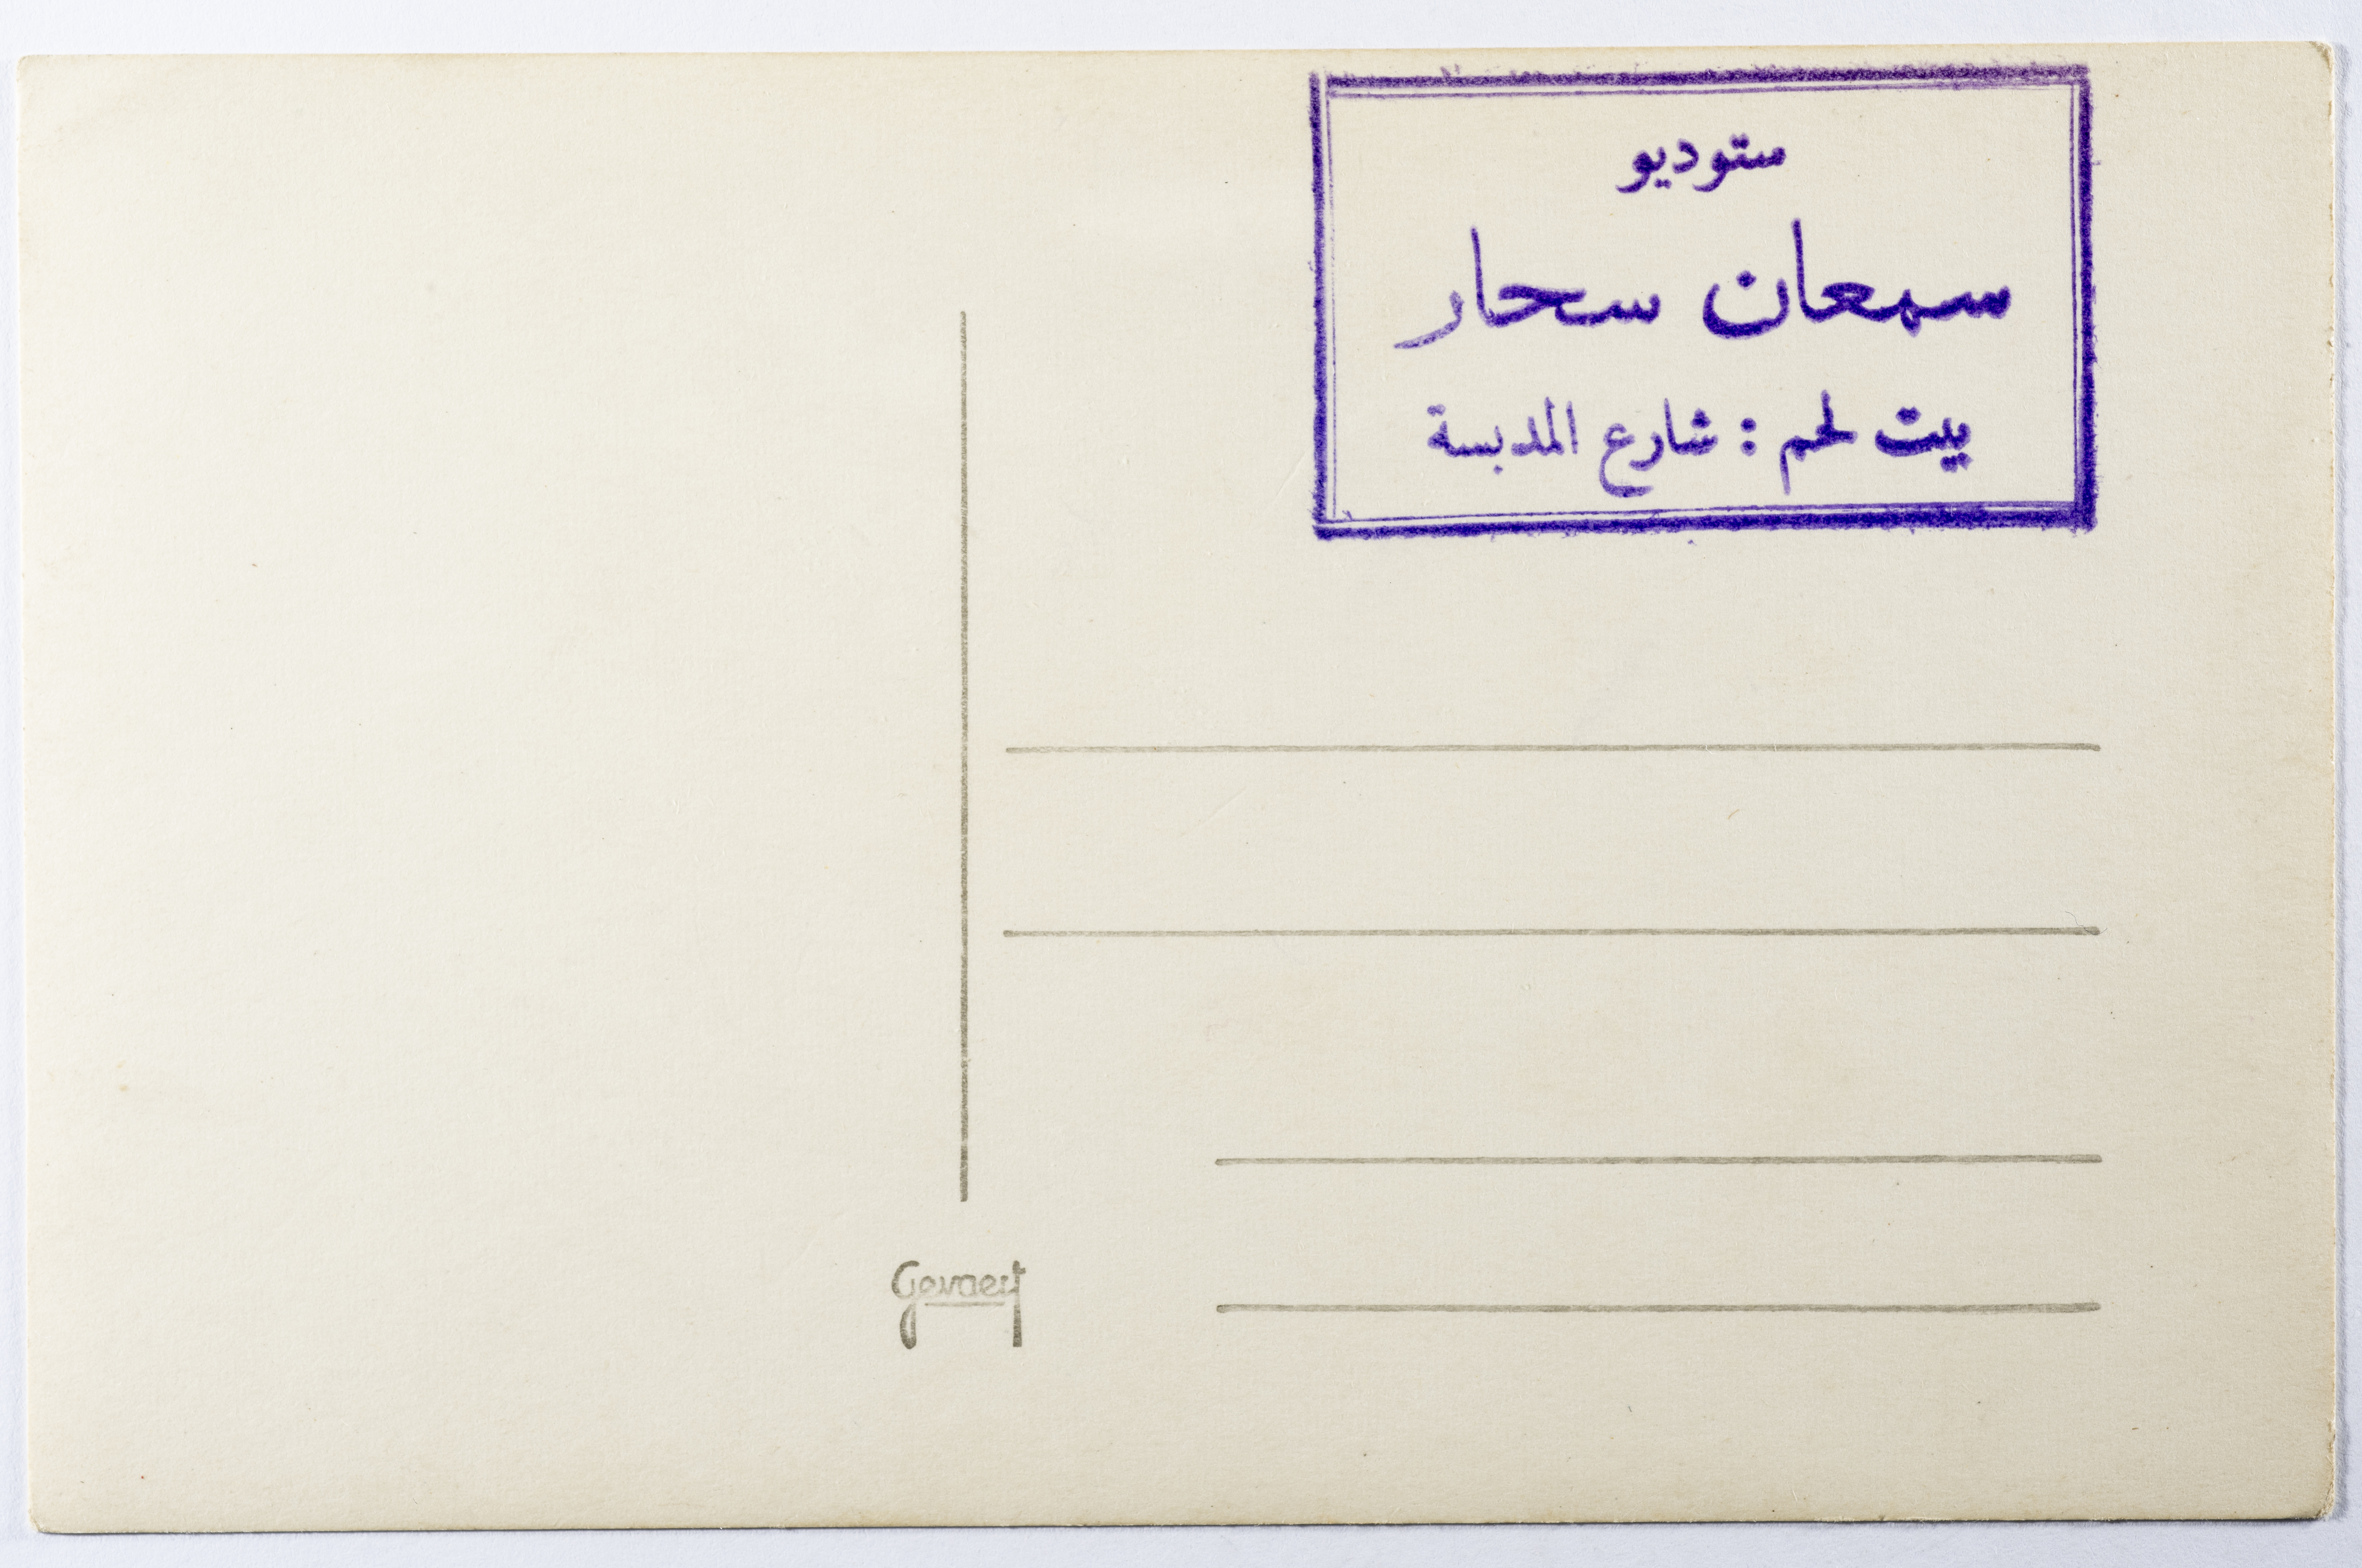 ستوديو
سمعان سحار
بيت لحم : شارع المدبسة
Gevaert